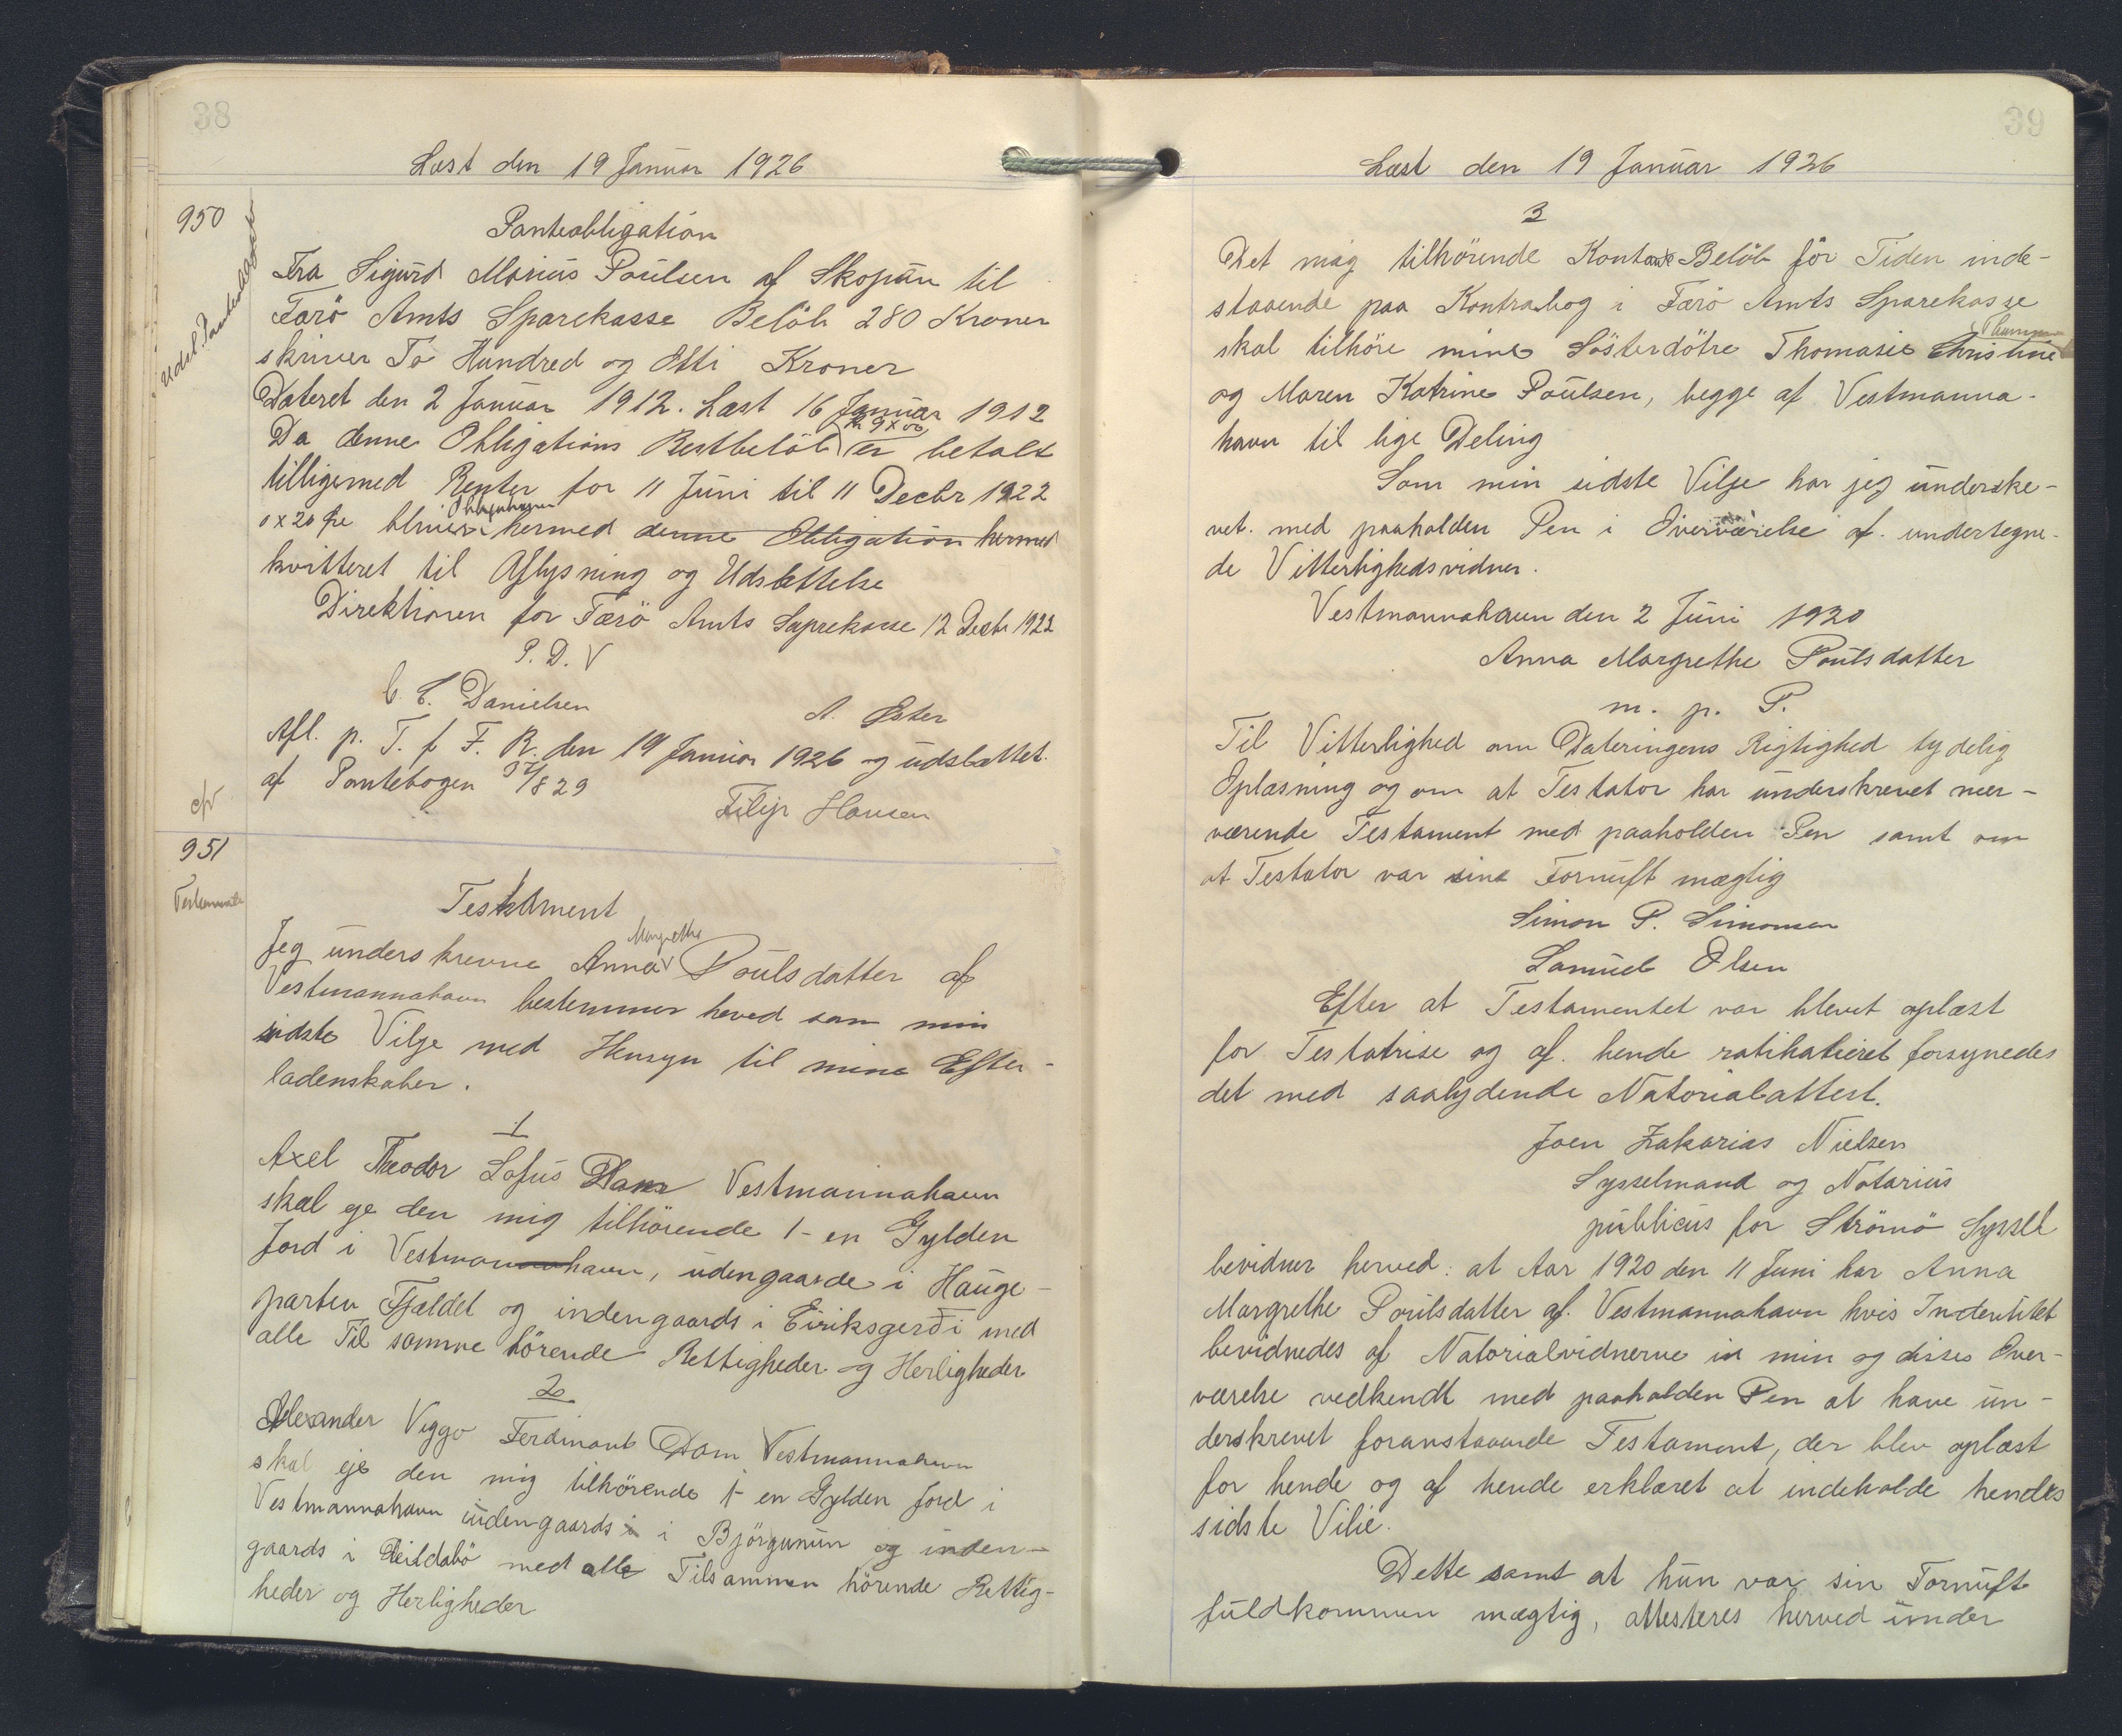 38
Læst den 19 Januar 1926
950
Udsl. Pantebogen
Panteobligation
Fra Sigurd Marius Poulsen af Skopun til
Færö Amts Sparekasse Belöb 280 Kroner
skriver To Hundred og Otti Kroner
Dateret den 2 Januar 1912. Læst 16 Januar 1912
Da denne Obligations Restbelöb Kr 9x00 er betalt
tilligemed Renter for 11 Juni til 11 Decbr 1922
0x20 Øre bliver Obligationen hermed denne Obligation hermed
kvitteret til Aflysning og Udslettelse
Direktionen for Færö Amts Saprekasse 12 Decbr 1922
P. D. V
C. C. Danielsen A. Ester
Afl. p. T. f F. R. den 19 Januar 1926 og udslættet
af Pantebogen /829
Filip Hansen
951
Testamente
Testament
Jeg underskrevne Anna Margrethe Poulsdatter af
Vestmannahavn bestemmer herved som min
sidste Vilje med Hensyn til mine Efter-
ladenskaber.
1
Axel Theodor Lofus Dam Vestmannahavn
skal eje den mig tilhörende 1 - en Gylden
Jord i Vestmannahavn, udengaarde i Hauge-
parten Fjældet og indengaards i Eiriksgerði med
alle Til samme hörende Rettigheder og Herligheder
2
Alexander Viggo Ferdinant Dam Vestmannahavn
skal eje den mig tilhörende 1 - en Gylden Jord i
Vestmannahavn udengaards i i Björgunum og inden-
gaards i Heildabö med alle Tilsammen hörende Rettig-
heder og Herligheder
39
Læst den 19 Januar 1926
3
Det mig tilhörende Kontant Belöb för Tiden inde-
staaende paa Kontrabog i Færö Amts Sparekasse
skal tilhöre mine Sösterdötre Thomasie Christine
og Maren Katrine Poulsen, begge af Vestmanna-
havn til lige Deling
Som min sidste Vilje har jeg underske-
vet. med paaholden Pen i Overværelse af. undertegne-
de Vitterlighedsvidner.
Vestmannahavn den 2 Juni 1920
Anna Margrethe Poulsdatter
m. p. P.
Til Vitterlighed om Dateringens Rigtighed tydelig
Oplæsning og om at Testator har underskrevet nær-
værende Testament med paaholden Pen samt om
at Testator var sine Fornuft mægtig
Simon P. Simonsen
Samuel Olsen
Efter at Testamentet var blevet oplæst
for Testatrise og af. hende ratihabieret forsynedes
det med saalydende Natorialattest.
Joen Zakarias Nielsen
Sysselmand og Notarius
publicus for Strömö Syssel
bevidner herved: at Aar 1920 den 11 Juni har Anna
Margrethe Poulsdatter af. Vestmannahavn hvis Indentitet
bevidnedes af Natorialvidnerne in min og disses Over-
værelse vedkendt med paaholden Pen at have un-
derskrevet foranstaaende Testament, der blev oplæst
for hende og af hende erklæret at indeholde hendes
sidste Vilie.
Dette samt at hun var sin Fornuft
fuldkommen mægtig, attesteres herved under